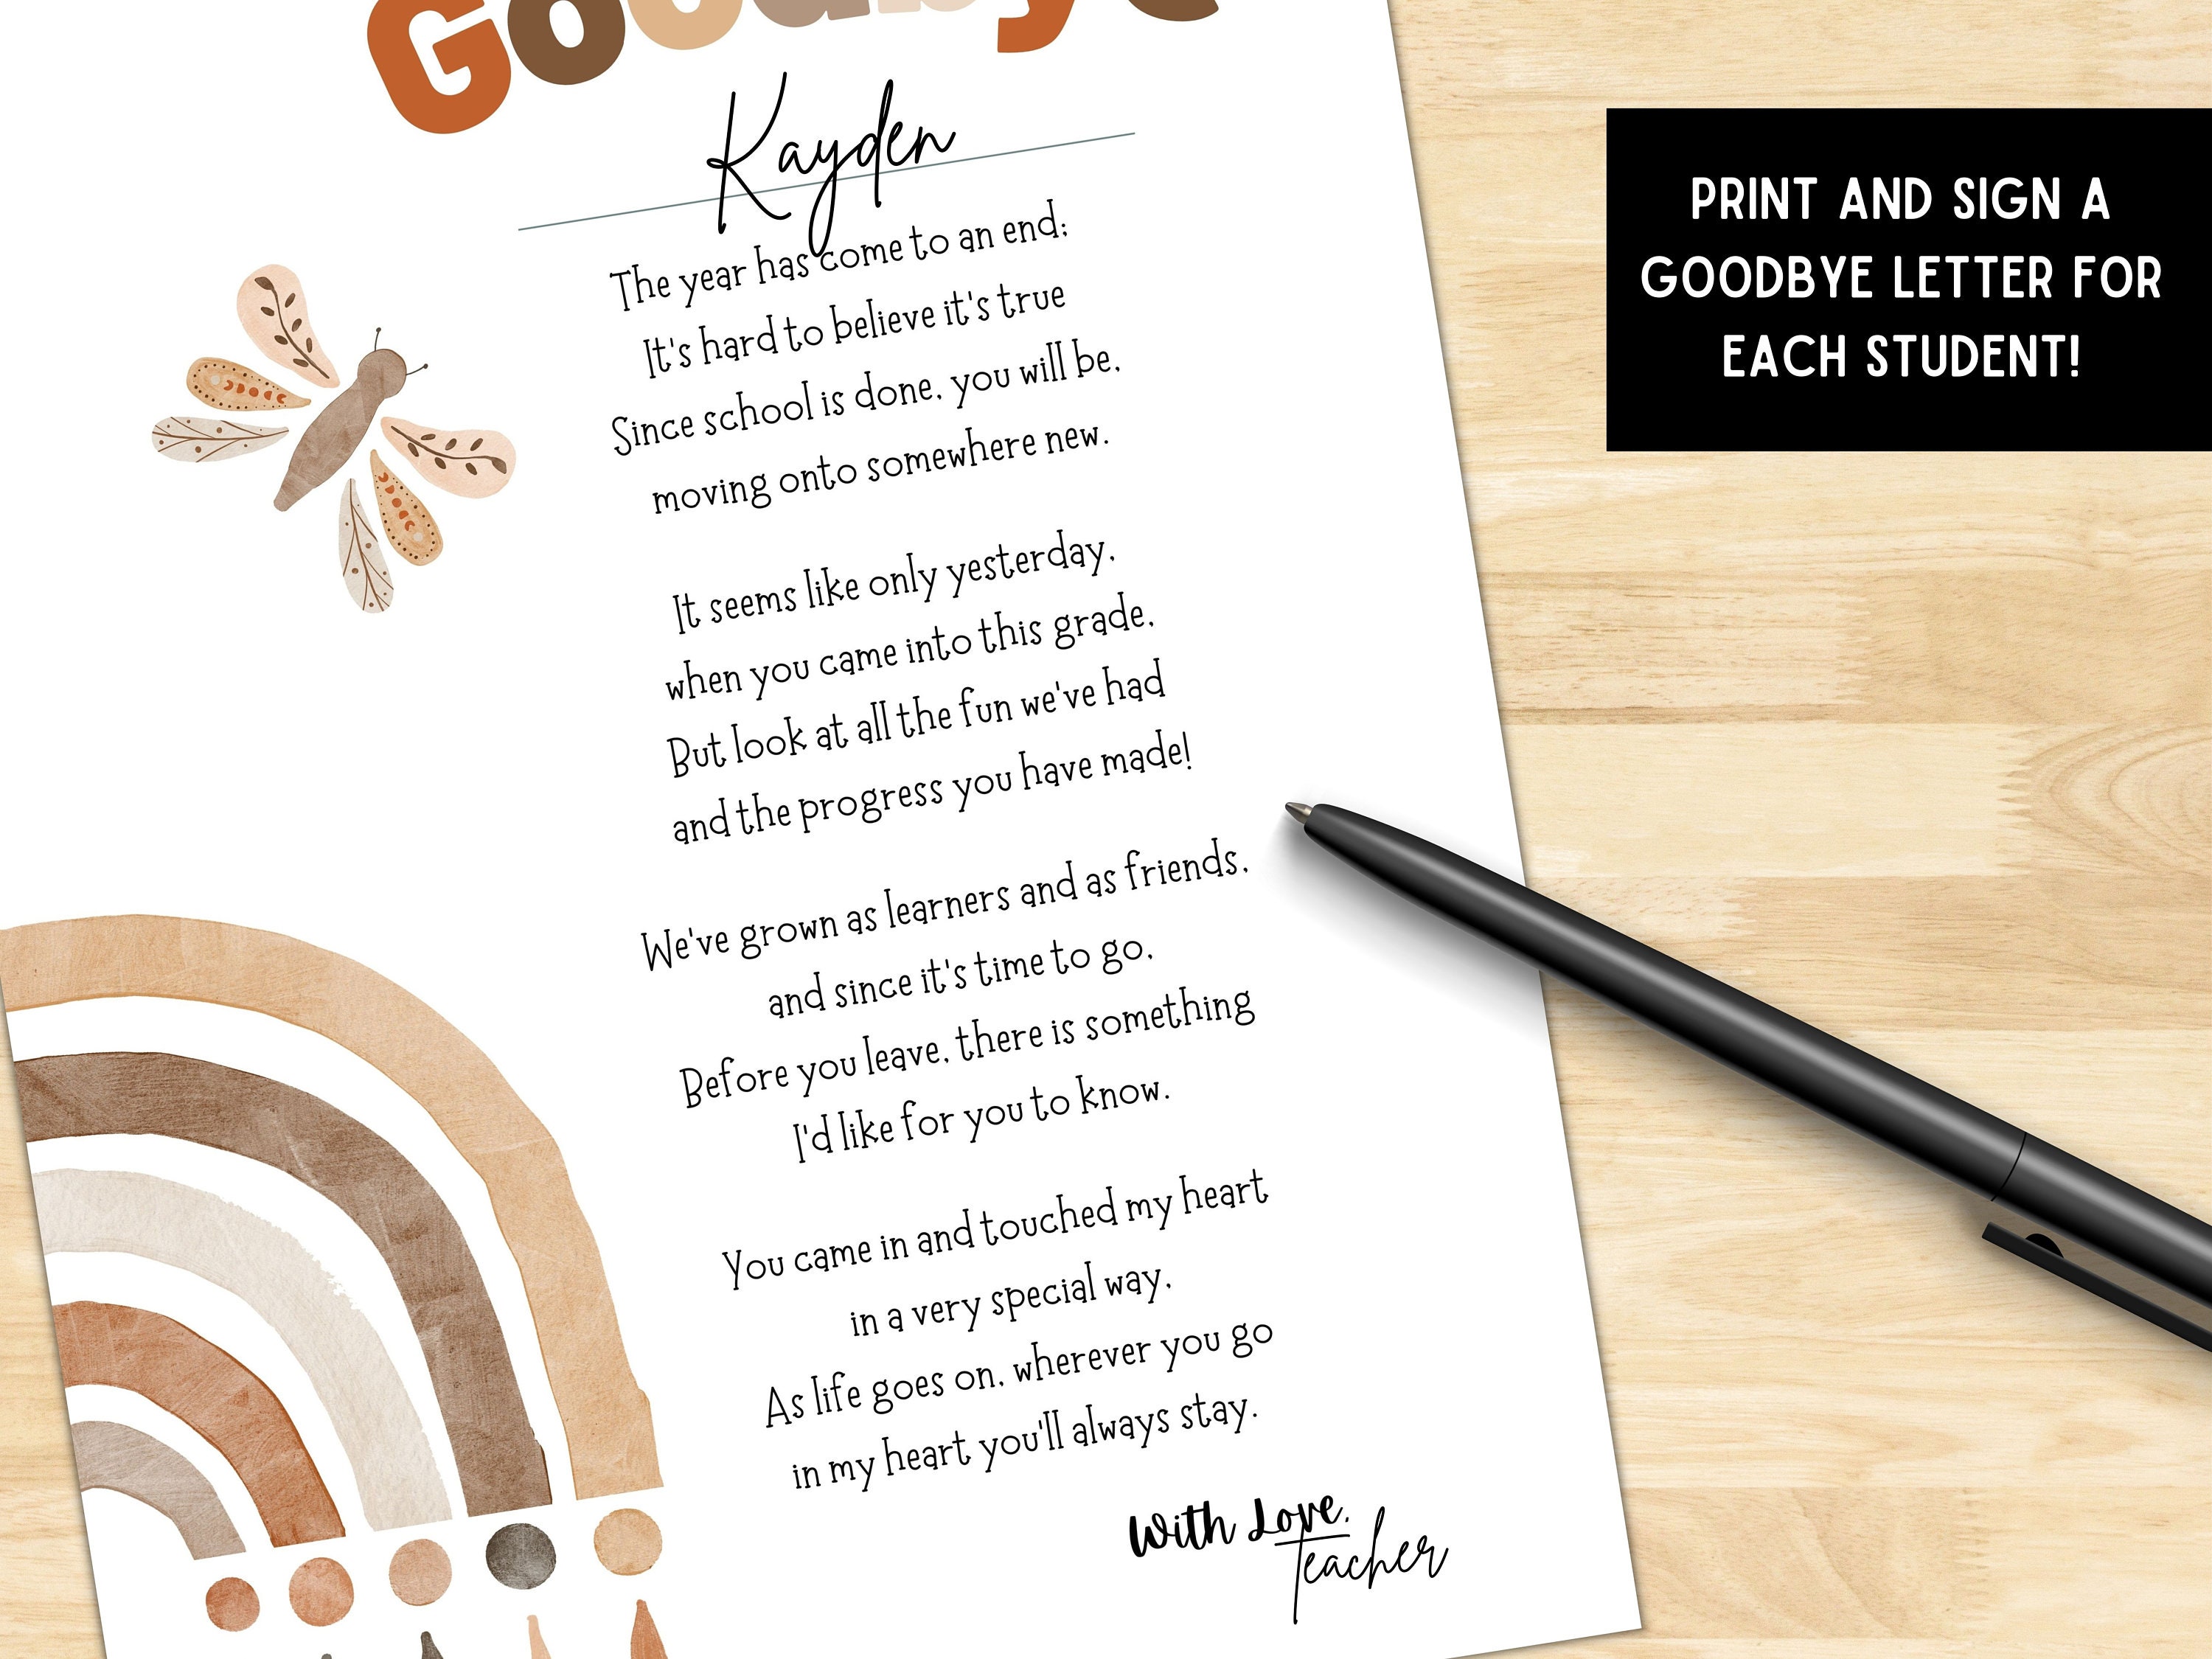 Goodbye
Kayden
The year has come to an end;
It's hard to believe it's true
Since school is done, you will be,
moving onto somewhere new.
It seems like only yesterday,
when you came into this grade,
But look at all the fun we've had
and the progress you have made!
We've grown as learners and as friends,
and since it's time to go,
Before you leave, there is something
I'd like for you to know.
You came in and touched my heart
in a very special way,
As life goes on, wherever you go
in my heart you'll always stay.
With Love,
Teacher
PRINT AND SIGN A
GOODBYE LETTER FOR
EACH STUDENT!